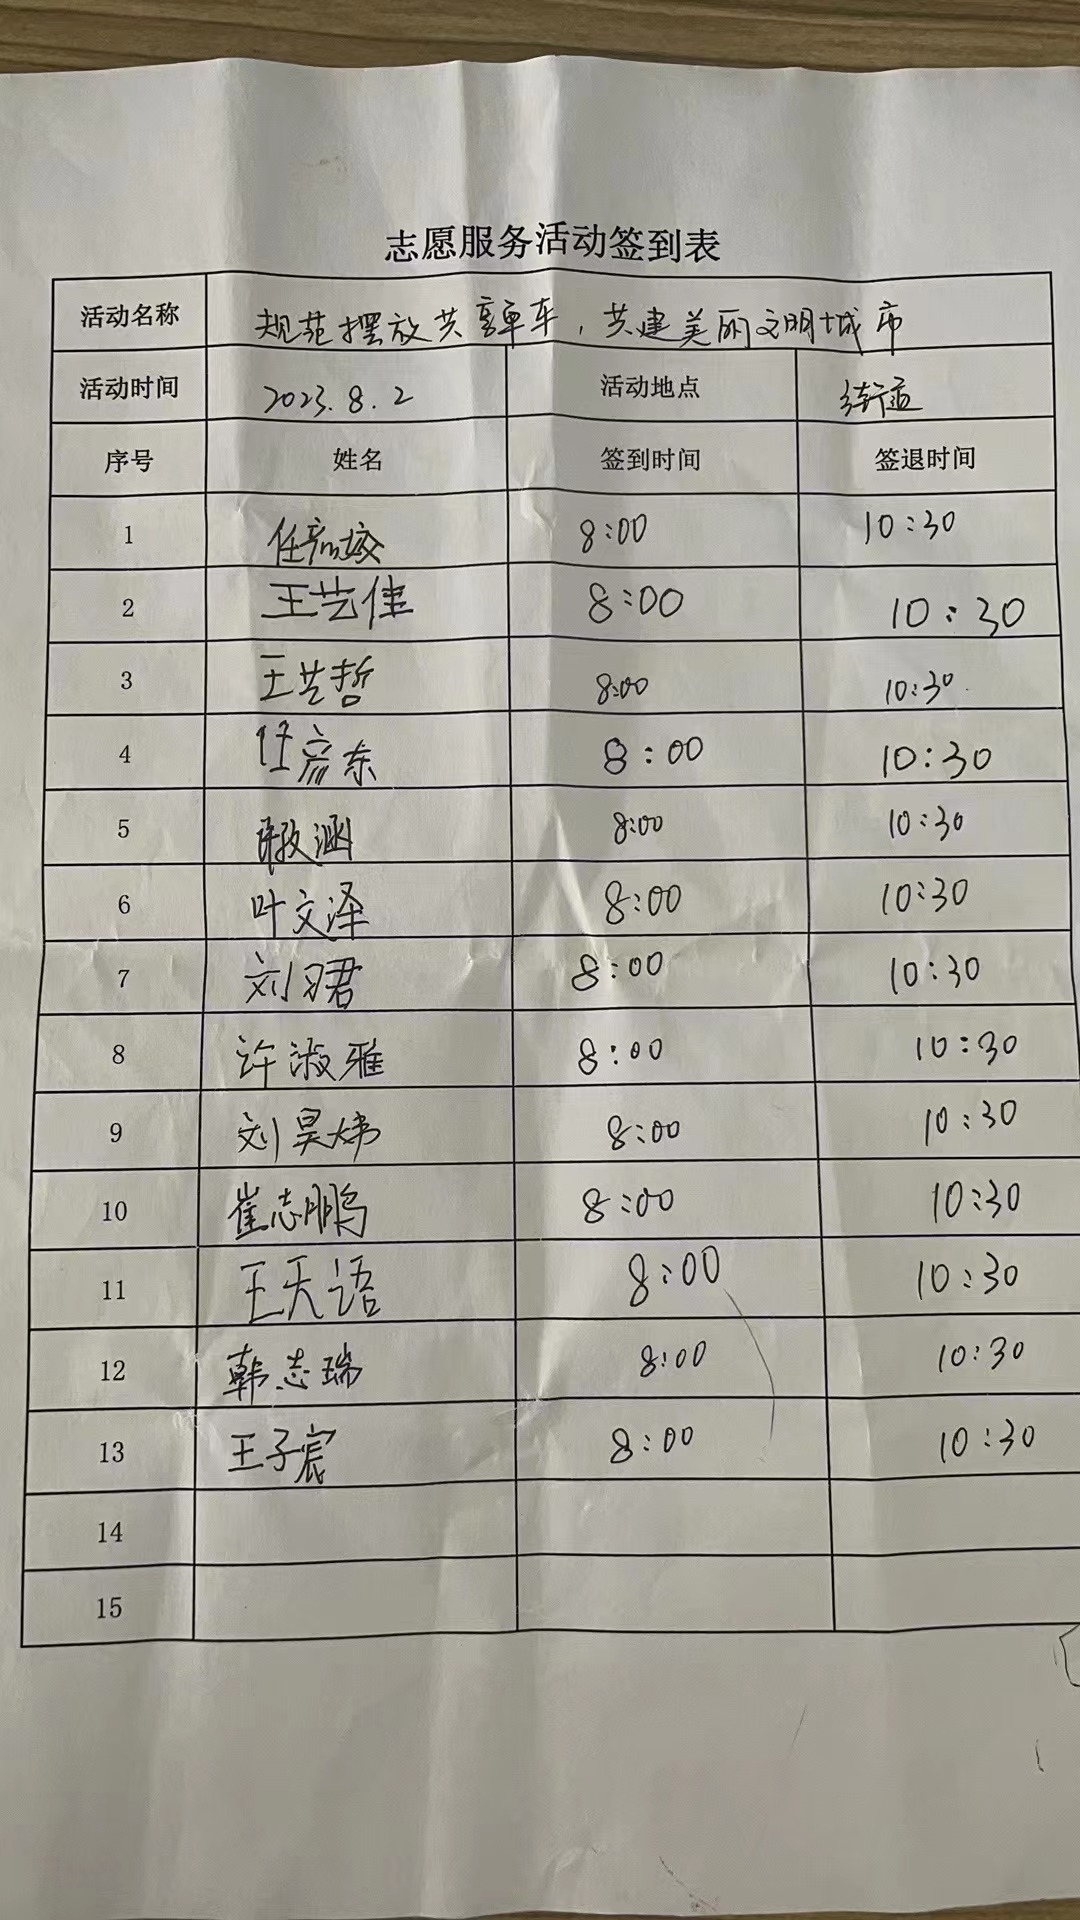 志愿服务活动签到表
活动名称 规范摆放共享单车，共建美丽文明城市
活动时间 2023.8.2 活动地点 街道
序号 姓名 签到时间 签退时间
1 任 8:00 10:30
2 王艺佳 8:00 10:30
3 王艺哲 8:00 10:30
4 任彦东 8:00 10:30
5 涵 8:00 10:30
6 叶文泽 8:00 10:30
7 刘习君 8:00 10:30
8 许淑雅 8:00 10:30
9 刘昊炜 8:00 10:30
10 崔志鹏 8:00 10:30
11 王天语 8:00 10:30
12 韩志瑞 8:00 10:30
13 王子宸 8:00 10:30
14
15